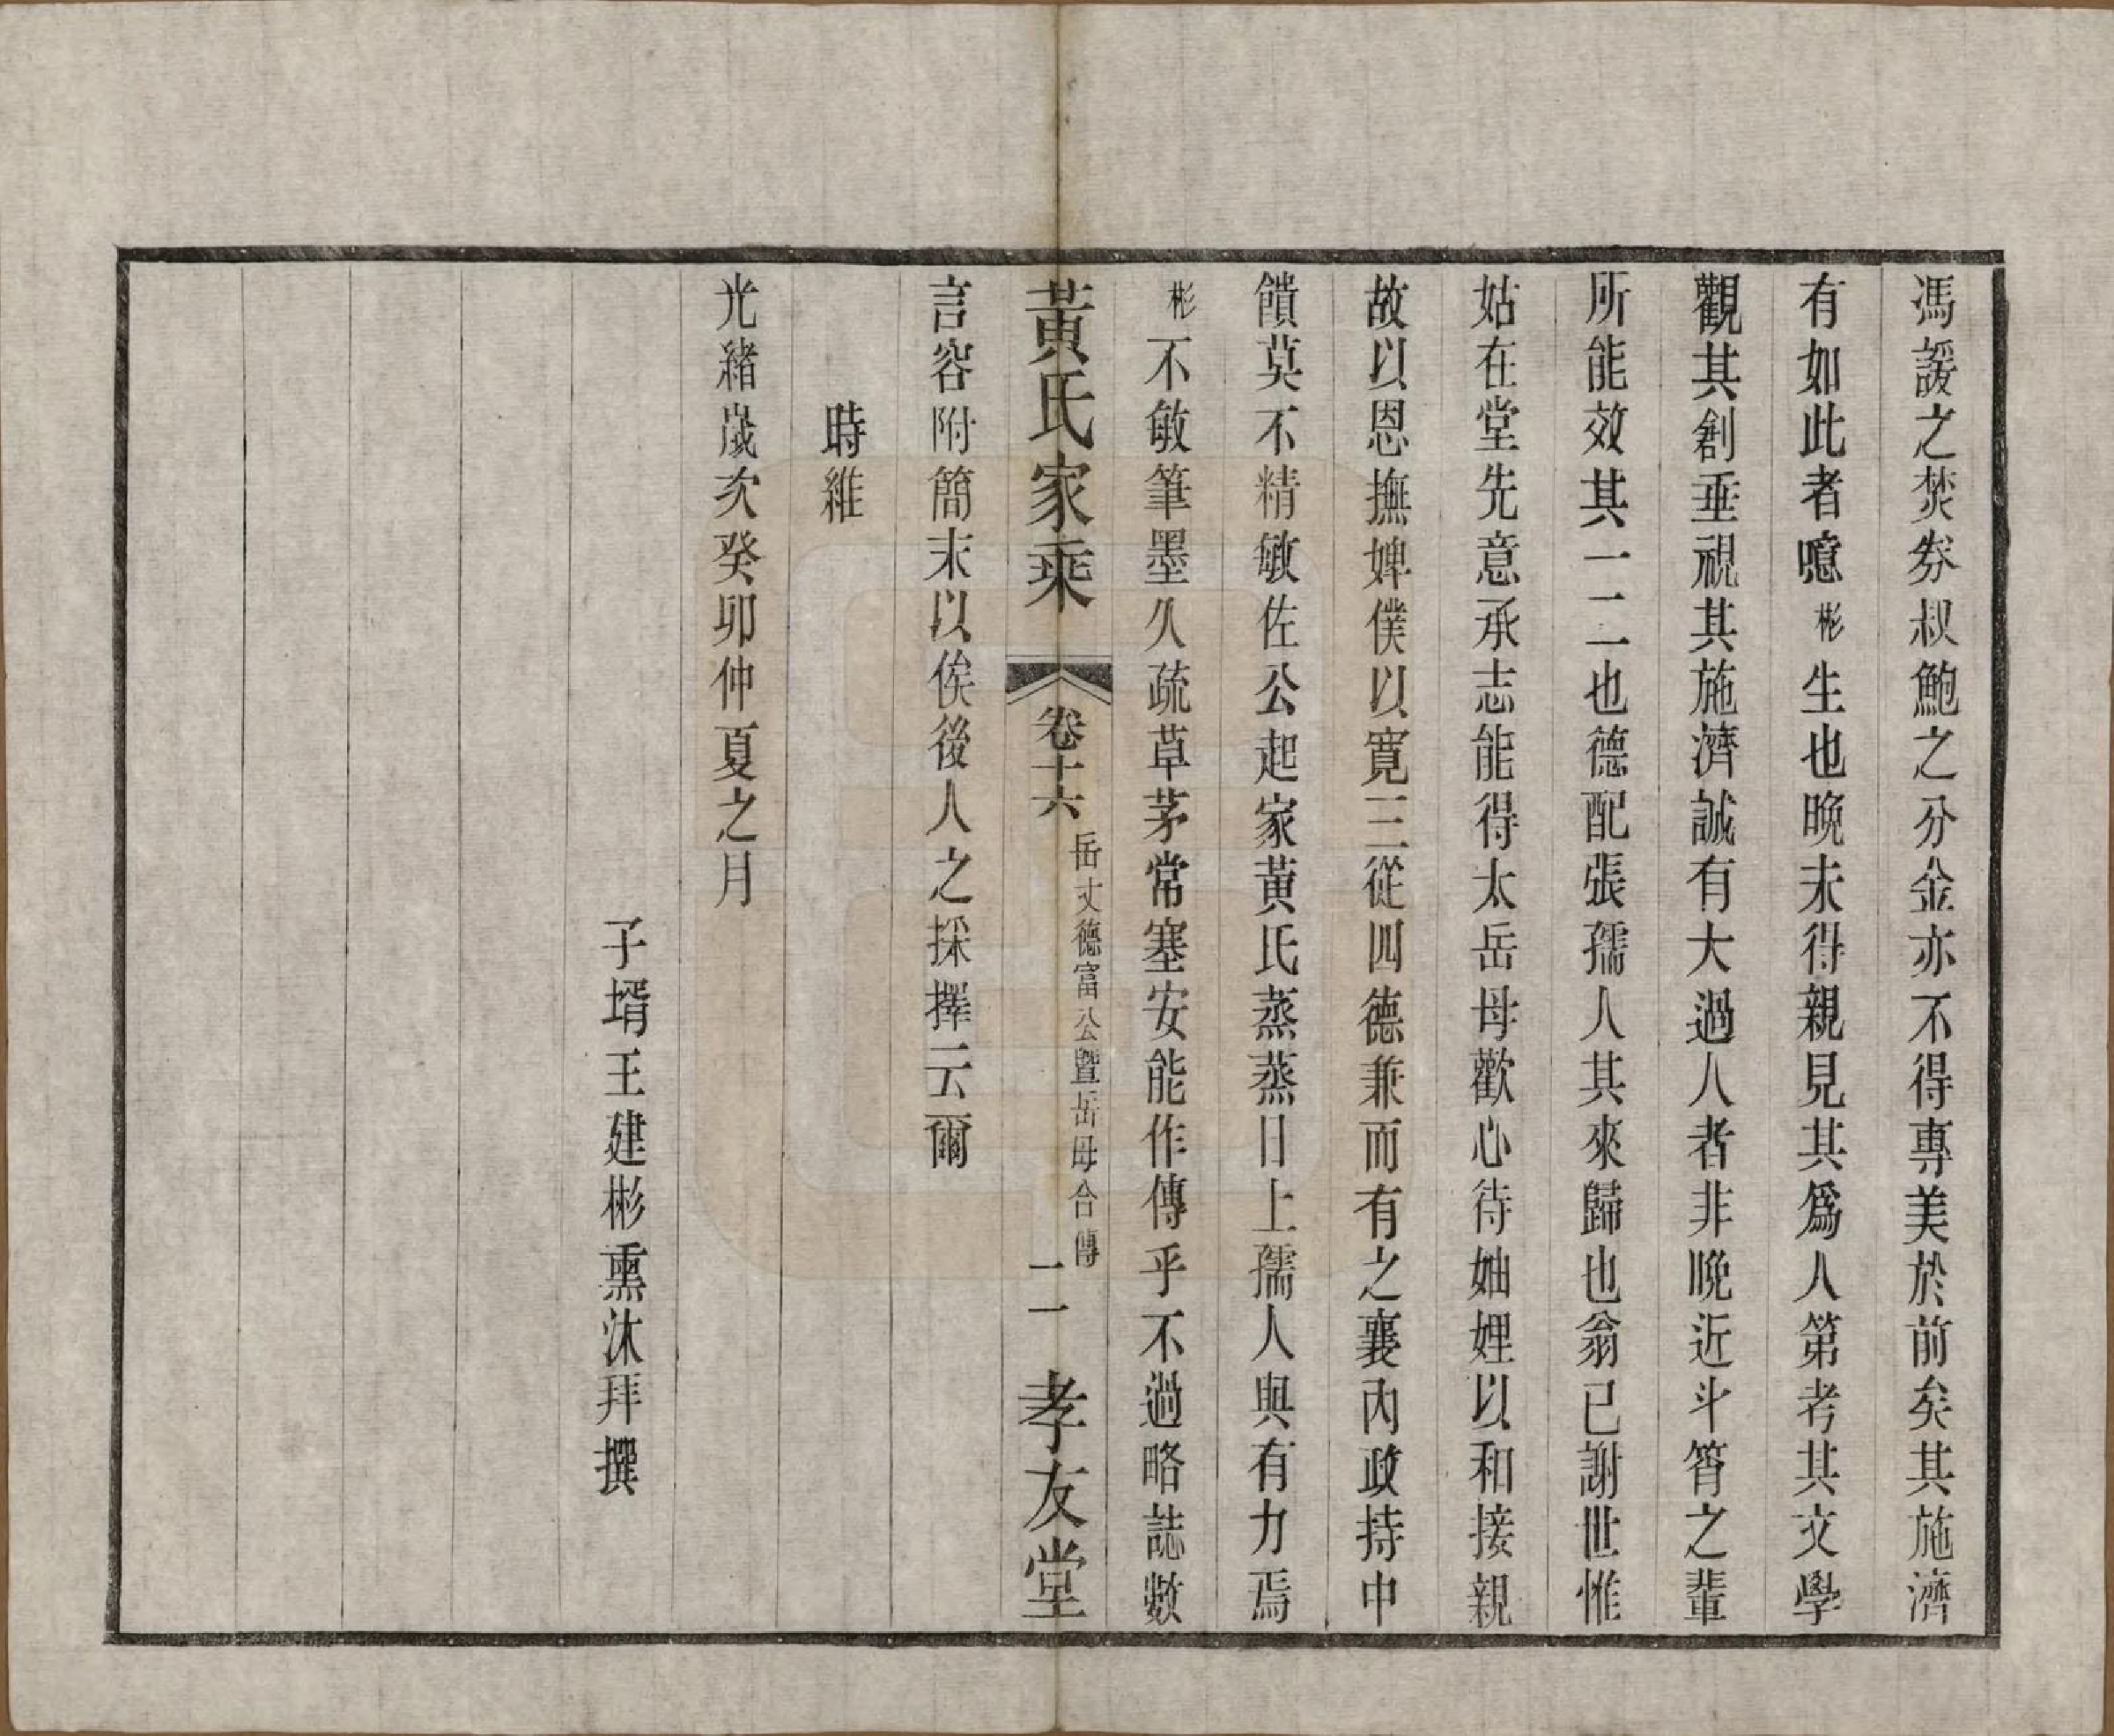 馮諼之焚券叔鮑之分金亦不得專美於前矣其施濟
有如此者噫彬生也晚未得親見其爲人第考其文學
觀其創垂視其施濟誠有大過人者非晚近斗筲之輩
所能效其一二也德配張孺人其來歸也翁已謝世惟
姑在堂先意承志能得太岳母歡心待妯娌以和接親
故以恩撫婢僕以寬三從四德兼而有之襄內政持中
饋莫不精敏佐公起家黃氏蒸蒸日上孺人與有力焉
彬不敏筆墨久疏草茅常塞安能作傳乎不過略誌數
黃氏家乘 卷十六 岳丈德富公暨岳母合傳 二 孝友堂
言容附簡末以俟後人之採擇云爾
時維
光緒歲次癸卯仲夏之月
子壻王建彬熏沐拜撰